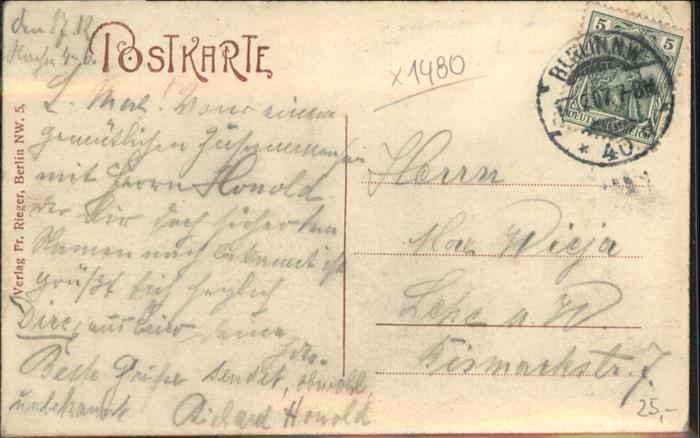 den 17.12
Nachm. 4-6.
POSTKARTE
x1480
5 5
DEUTSCHES REICH
BERLIN N.W.
07. 7-8N
* 40
L. Max! Von einem
gemütlichen Zusammensein
mit Herrn Honold
der Dir doch sicher dem
Namen nach bekannt ist
grüßt Dich herzlich
Beste Grüße sendet, obwohl
unbekannt Richard Honold
Herrn
Max Wieja
Lehe a. W.
Bismarckstr. 7.
25,-
Verlag Fr. Rieger, Berlin NW. 5.